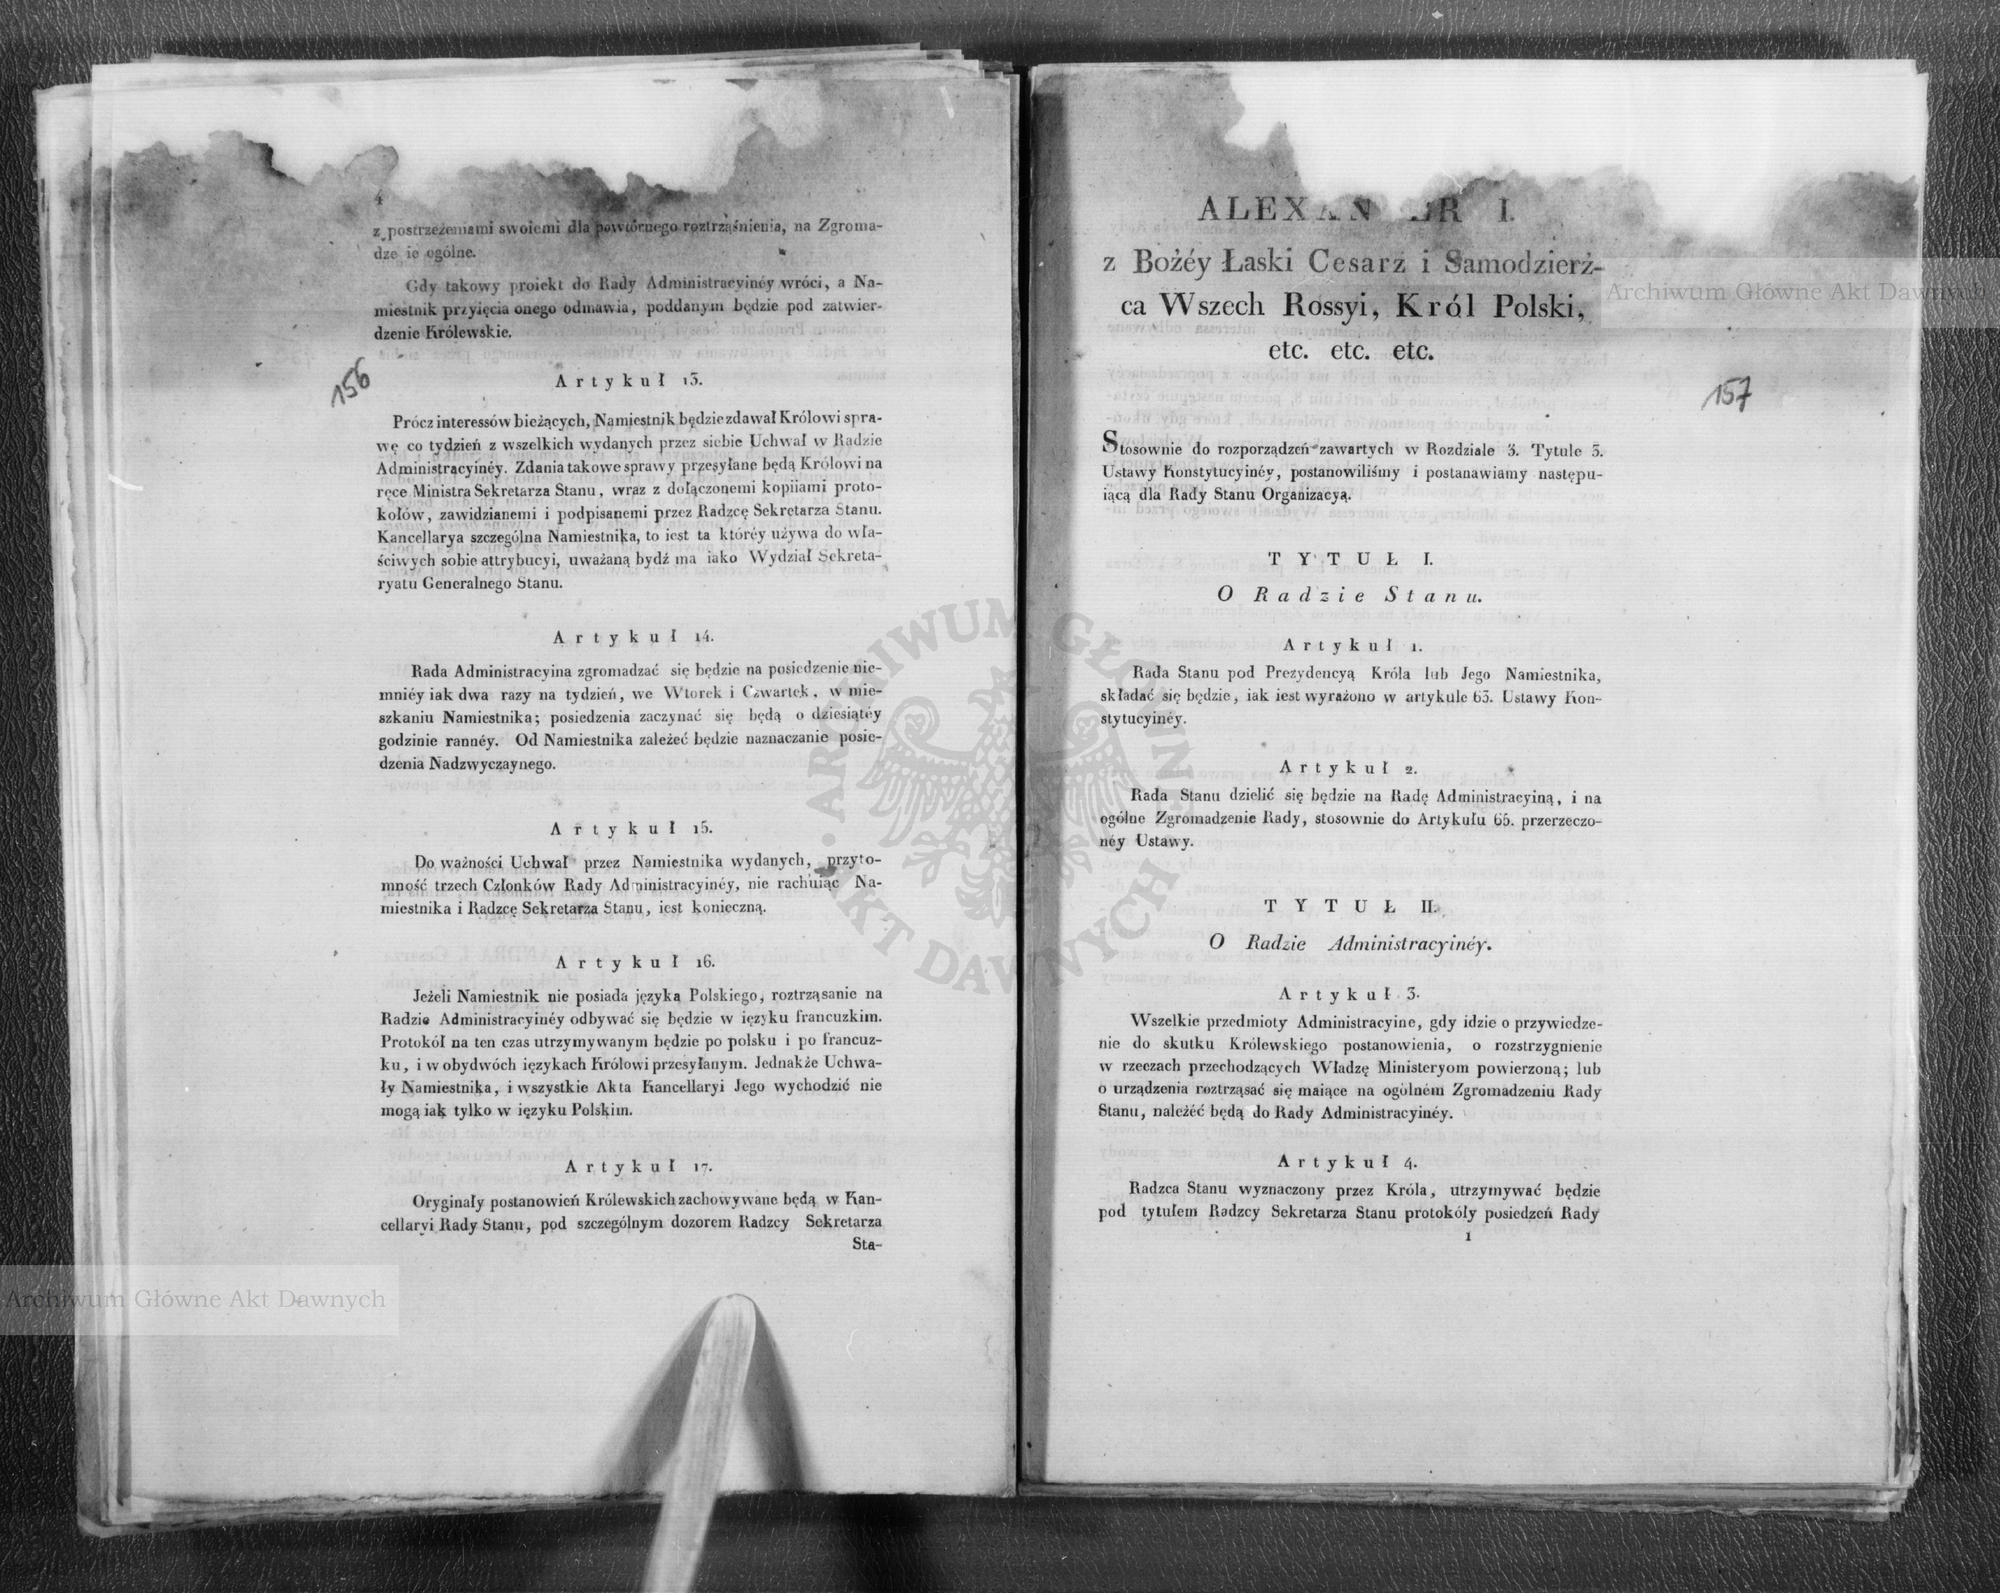 4
z postrzeżeniami swoiemi dla powtórnego roztrząśnienia, na Zgroma-
dze ie ogólne.
Gdy takowy proiekt do Rady Administracyinéy wróci, a Na-
miestnik przyięcia onego odmawia, poddanym będzie pod zatwier-
dzenie Królewskie.
156
Artykuł 13.
Prócz interessów bieżących, Namiestnik będzie zdawał Królowi spra-
wę co tydzień z wszelkich wydanych przez siebie Uchwał w Radzie
Administracyinéy. Zdania takowe sprawy przesyłane będą Królowi na
ręce Ministra Sekretarza Stanu, wraz z dołączonemi kopiiami proto-
kołów, zawidzianemi i podpisanemi przez Radzcę Sekretarza Stanu.
Kancellarya szczególna Namiestnika, to iest ta któréy używa do wła-
ściwych sobie attrybucyi, uważaną bydź ma iako Wydział Sekreta-
ryatu Generalnego Stanu.
Artykuł 14.
Rada Administracyina zgromadzać się będzie na posiedzenie nie-
mniéy iak dwa razy na tydzień, we Wtorek i Czwartek, w mie-
szkaniu Namiestnika; posiedzenia zaczynać się będą o dziesiątéy
godzinie rannéy. Od Namiestnika zależeć będzie naznaczanie posie-
dzenia Nadzwyczaynego.
Artykuł 15.
Do ważności Uchwał przez Namiestnika wydanych, przyto-
mność trzech Członków Rady Administracyinéy, nie rachuiąc Na-
miestnika i Radzcę Sekretarza Stanu, iest konieczną.
Artykuł 16.
Jeżeli Namiestnik nie posiada języka Polskiego, roztrząsanie na
Radzie Administracyinéy odbywać się będzie w ięzyku francuzkim.
Protokół na ten czas utrzymywanym będzie po polsku i po francuz-
ku, i w obydwóch ięzykach Królowi przesyłanym. Jednakże Uchwa-
ły Namiestnika, i wszystkie Akta Kancellaryi Jego wychodzić nie
mogą iak tylko w ięzyku Polskim.
Artykuł 17.
Oryginały postanowień Królewskich zachowywane będą w Kan-
cellaryi Rady Stanu, pod szczególnym dozorem Radzcy Sekretarza
Sta-
Archiwum Główne Akt Dawnych
ARCHIWUM GŁÓWNE AKT DAWNYCH
ALEXAN DR I.
z Bożéy Łaski Cesarz i Samodzierż-
ca Wszech Rossyi, Król Polski,
etc. etc. etc.
Archiwum Główne Akt Dawnych
157
Stosownie do rozporządzeń zawartych w Rozdziale 3. Tytule 3.
Ustawy Konstytucyinéy, postanowiliśmy i postanawiamy następu-
iącą dla Rady Stanu Organizacyą.
TYTUŁ I.
O Radzie Stanu.
Artykuł 1.
Rada Stanu pod Prezydencyą Króla lub Jego Namiestnika,
składać się będzie, iak iest wyrażono w artykule 63. Ustawy Kon-
stytucyinéy.
Artykuł 2.
Rada Stanu dzielić się będzie na Radę Administracyiną, i na
ogólne Zgromadzenie Rady, stosownie do Artykułu 65. przerzeczo-
néy Ustawy.
TYTUŁ II.
O Radzie Administracyinéy.
Artykuł 3.
Wszelkie przedmioty Administracyine, gdy idzie o przywiedze-
nie do skutku Królewskiego postanowienia, o rozstrzygnienie
w rzeczach przechodzących Władzę Ministeryom powierzoną; lub
o urządzenia roztrząsać się maiące na ogólném Zgromadzeniu Rady
Stanu, należéć będą do Rady Administracyinéy.
Artykuł 4.
Radzca Stanu wyznaczony przez Króla, utrzymywać będzie
pod tytułem Radzcy Sekretarza Stanu protokóły posiedzeń Rady
1